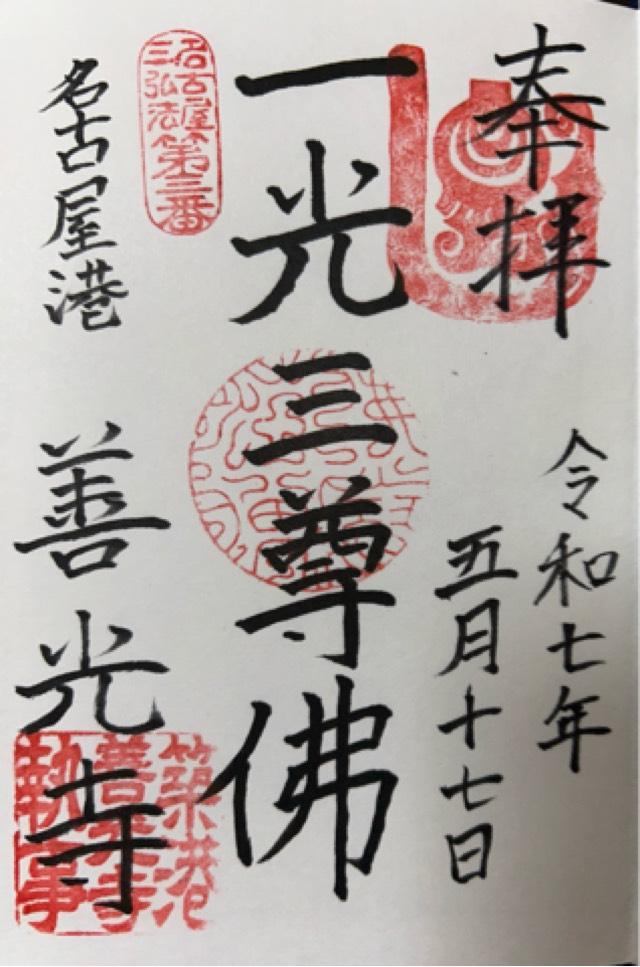 奉拝
令和七年
五月十七日
一光三尊佛
名古屋
三弘法第三番
名古屋港
善光寺
築港
善光寺
執事